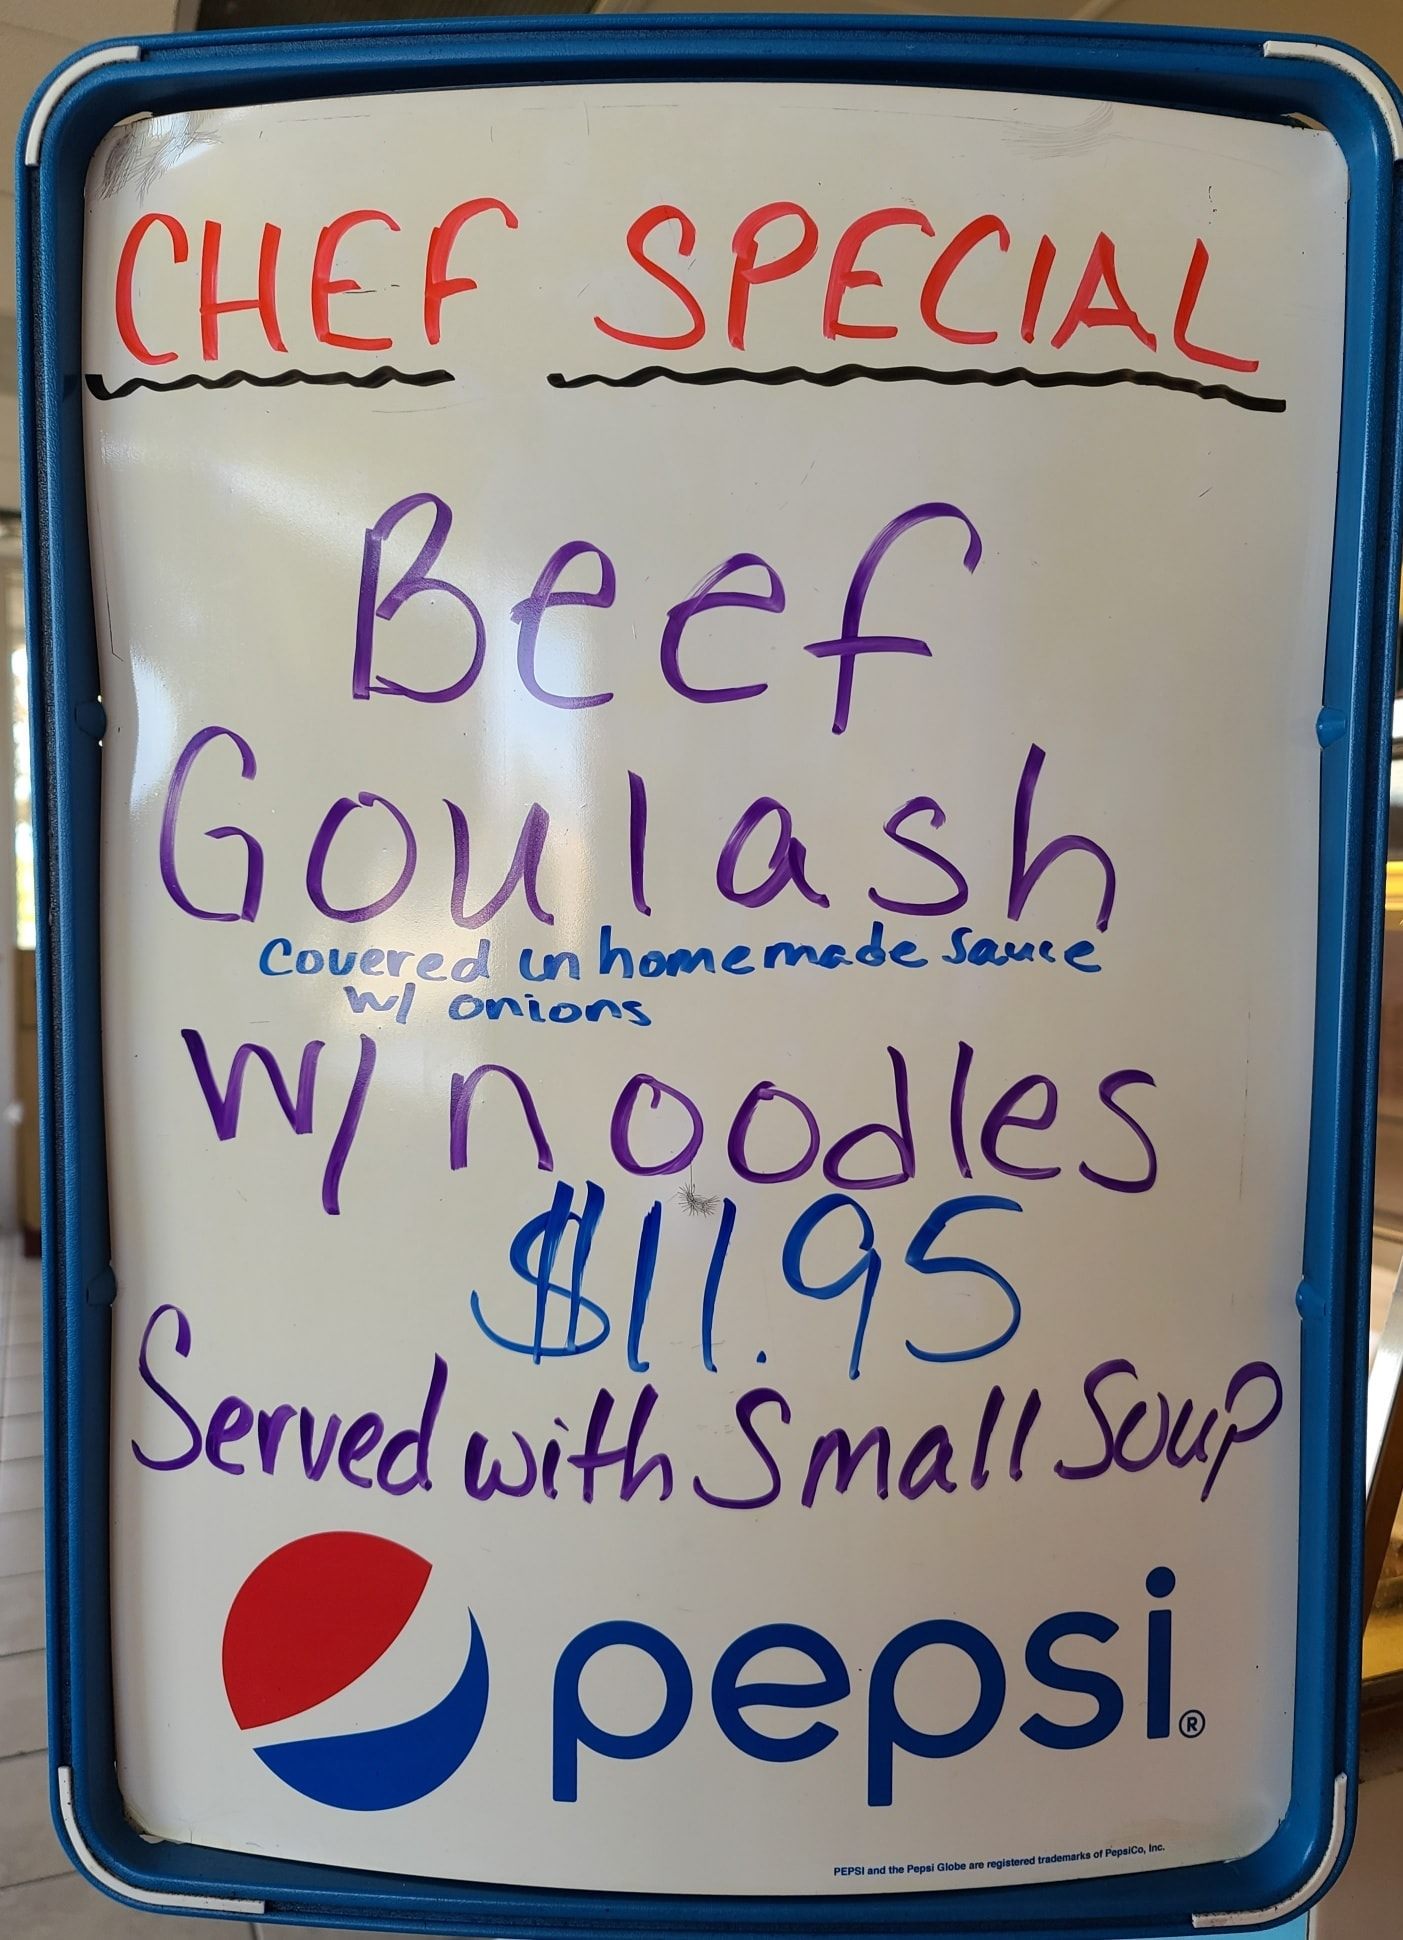 CHEF SPECIAL
Beef
Goulash
Covered in homemade Sauce
w/ onions
w/ noodles
$11.95
Served with Small Soup
pepsi®
PEPSI and the Pepsi Globe are registered trademarks of PepsiCo, Inc.